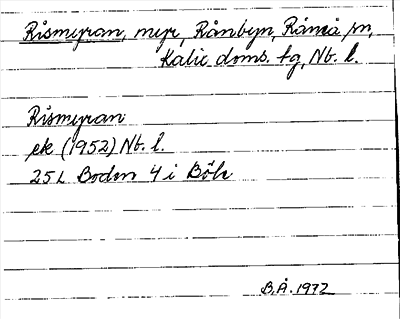 Rismyran, myr, Rånbyn, Råneå sn,
Kalix doms. tg, Nb. l.
Rismyran
ek (1952) Nb. l.
25 L Boden 4 i Böle
B.Å. 1972